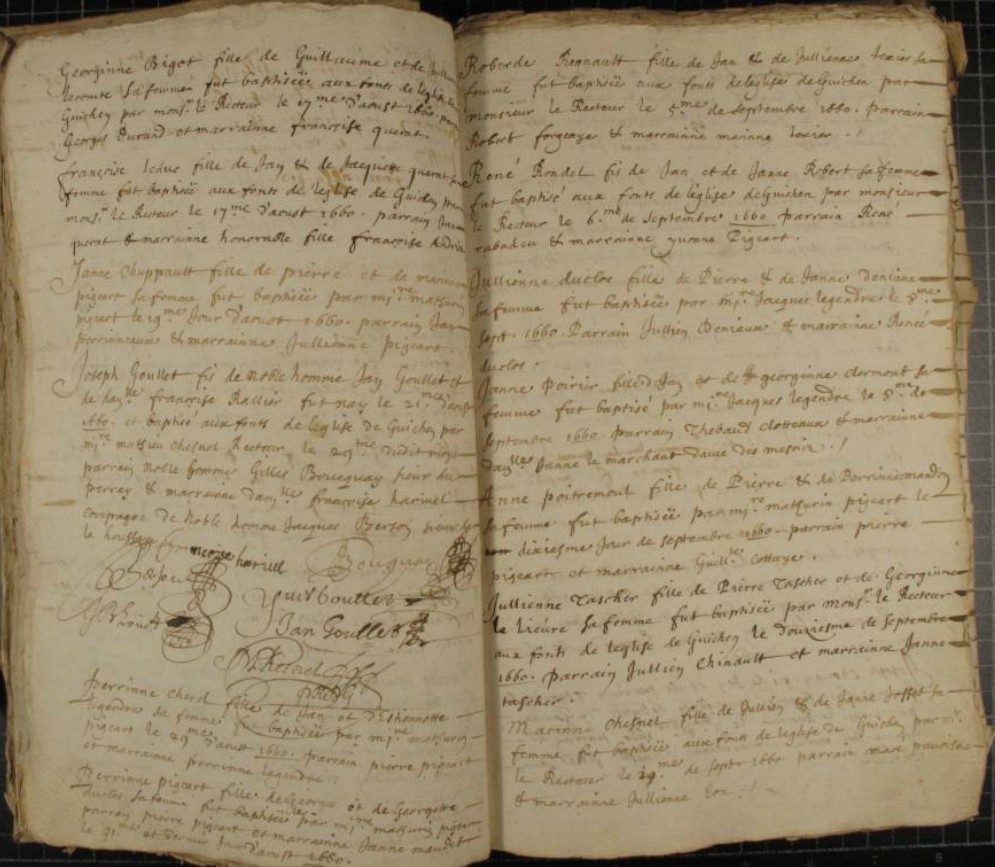 Georginne Bigot fille de Guillaume et de
lecomte sa femme fut baptisée aux fonts de leglise de
Guichen par monsr le Recteur le 17me d'aoust 1660.
Georges Durand et marrainne françoise querat.
françoise leduc fille de Jan & de Jacquette querat
femme fut baptisée aux fonts de leglise de Guichen par
monsr le Recteur le 17me d'aoust 1660. parrain
querat & marrainne honorable fille françoise
Janne Chuppault fille de pierre et de
pigeart sa femme fut baptisée par mire mathurin
pigeart le 19me Jour d'aoust 1660. parrain Jan
perrinneaux & marrainne Jullienne pigeart.
Joseph Goullet fis de Noble homme Jan Goullet et
de daylle françoise Rallier fut nay le 21me d'aoust
1660. et baptisé aux fonts de leglise de Guichen par
mire mathieu Chesnel Recteur le 29me dudit mois
parrain Noble homme Gilles sieur du
perray & marrainne daylle françoise harivel
compagne de Noble homme Jacques Berton sieur de
la houssay
françoise harivel
Jan Goullet
Chesnel
perrinne Cherel fille de Jan et d'Estiennette
legendre sa femme fut baptisée par mire mathurin
pigeart le 29me d'aoust 1660. parrain pierre pigeart
et marrainne perrinne legendre.
Perrinne pigeart fille de George et de Georgette
duclos sa femme fut baptisée par mire mathurin pigeart
parrain pierre pigeart et marrainne Janne
le 31me et dernier Jour d'aoust 1660.
Roberde Regnault fille de Jan & de Jullienne texier sa
femme fut baptisée aux fonts de leglise de Guichen par
monsieur le Recteur le 5me de septembre 1660. parrain
Robert forgeaye & marrainne mainne texier.
René Rondel fis de Jan et de Janne Robert sa femme
fut baptisé aux fonts de leglise de Guichen par monsieur
le Recteur le 6me de septembre 1660 parrain René
rabadeu & marrainne yvonne Pigeart.
Jullienne duclos fille de Pierre & de Janne Deniaux
sa femme fut baptisée par mire Jacques legendre le 8me
sept. 1660. Parrain Jullien Deniaux & marrainne Renée
duclos.
Janne Poirier fille d Jan et de georginne clermont sa
femme fut baptisé par mire Jacques legendre le 8me de
septembre 1660. parrain Thebaud clotteaux & marrainne
daylle Janne le marchant dame des
Anne poitremoul fille de Pierre & de Perrinne mandin
sa femme fut baptisée par mire mathurin pigeart le
dixiesme Jour de septembre 1660. parrain pierre
pigeart et marrainne Guille Cottaye.
Jullienne Tascher fille de Pierre Tascher et de Georginne
le lieure sa femme fut baptisée par Monsr le Recteur
aux fonts de leglise de Guichen le douziesme de septembre
1660. Parrain Jullien Chinault et marrainne Janne
tascher.
Marinne Chesnel fille de Jullien & de Janne Josset sa
femme fut baptisée aux fonts de leglise de Guichen par mr
le Recteur le 29me de septr 1660. parrain marc
& marrainne Jullienne